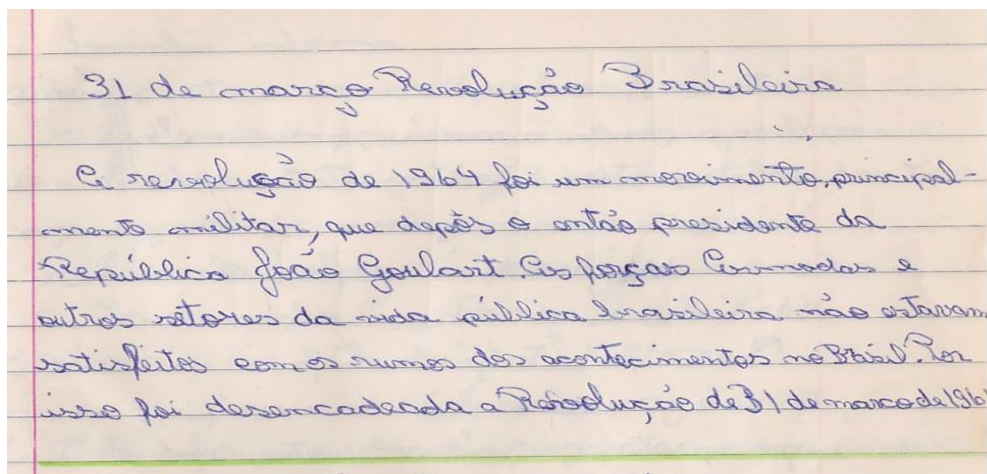 31 de março Revolução Brasileira
A revolução de 1964 foi um movimento, principal-
mente militar, que depôs o então presidente da
República João Goulart. As forças Armadas e
outros setores da vida pública brasileira não estavam
satisfeitos com os rumos dos acontecimentos no Brasil. Por
isso foi desencadeada a Revolução de 31 de marco de 196